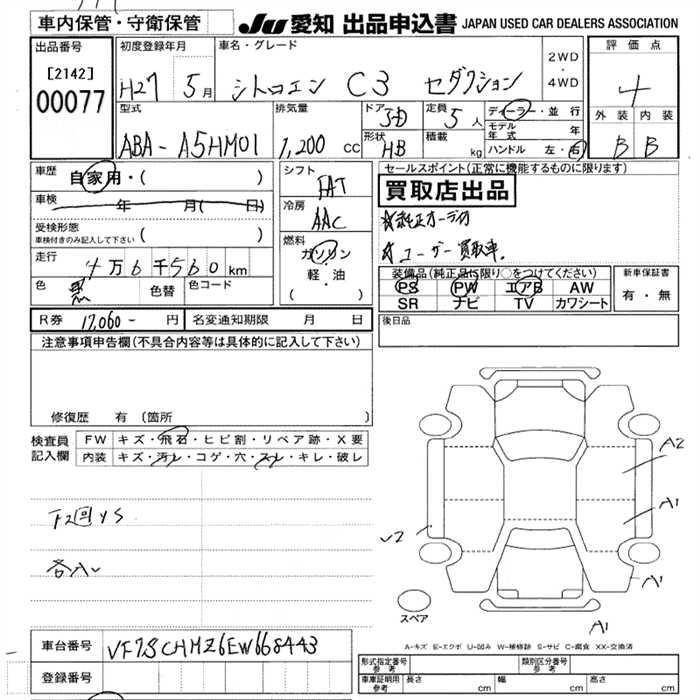 車内保管・守衛保管
JU 愛知 出品申込書 JAPAN USED CAR DEALERS ASSOCIATION
出品番号
[2142]
00077
初度登録年月
H27 5月
車名・グレード
シトロエン C3 セダクション
2WD
・
4WD
評価点
4
外装 内装
B B
型式
ABA-A5HM01
排気量
1,200 cc
ドアー
5D
形状
HB
定員
5 人
積載
kg
ディーラー・並行
モデル年式 年
ハンドル 左・右
車歴
自家用・( )
車検
年 月( 日)
受検形態
車検付きのみ記入して下さい ( )
走行
4万6千560km
色
黒
色替
色コード
シフト
FAT
冷房
AAC
燃料
ガソリン
・
軽・油
( )
セールスポイント(正常に機能するものに限ります)
買取店出品
☆純正オーディオ
☆ユーザー買取車.
装備品(純正品に限り○をつけてください)
PS PW エアB AW
SR ナビ TV カワシート
新車保証書
有・無
R券 17,060- 円
名変通知期限 月 日
後日品
注意事項申告欄(不具合内容等は具体的に記入して下さい)
修復歴 有 (箇所
検査員
記入欄
FW キズ・飛石・ヒビ割・リペア跡・X要
内装 キズ・汚レ・コゲ・穴・スレ・キレ・破レ
各A
A2
A1
A1
A1
スペア
A-キズ E-エクボ U-凹み W-補修跡 S-サビ C-腐食 XX-交換済
車台番号
VF7SCHMZ6EW668443
登録番号
形式指定番号
参考
類別区分番号
参考
車庫証明用
参考
長さ cm 幅 cm 高さ cm